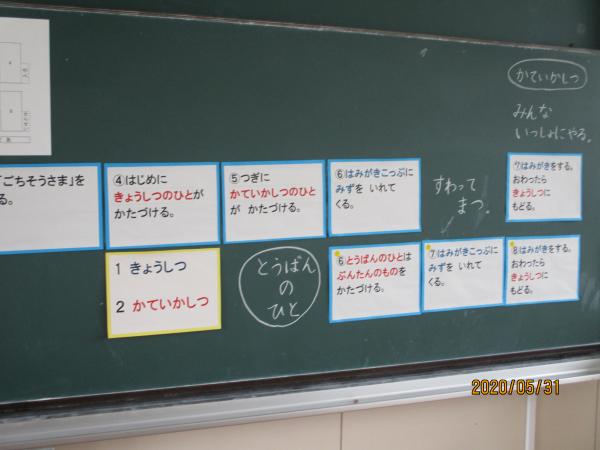 かていかしつ
みんな
いっしょにやる。
「ごちそうさま」を
る。
④はじめに
きょうしつのひとが
かたづける。
⑤つぎに
かていかしつのひと
が かたづける。
⑥はみがきこっぷに
みずを いれて
くる。
すわって
まつ。
⑦はみがきをする。
おわったら
きょうしつに
もどる。
1 きょうしつ
2 かていかしつ
とうばん
の
ひと
⑥とうばんのひとは
ぶんたんのものを
かたづける。
⑦はみがきこっぷに
みずを いれて
くる。
⑧はみがきをする。
おわったら
きょうしつに
もどる。
2020/05/31